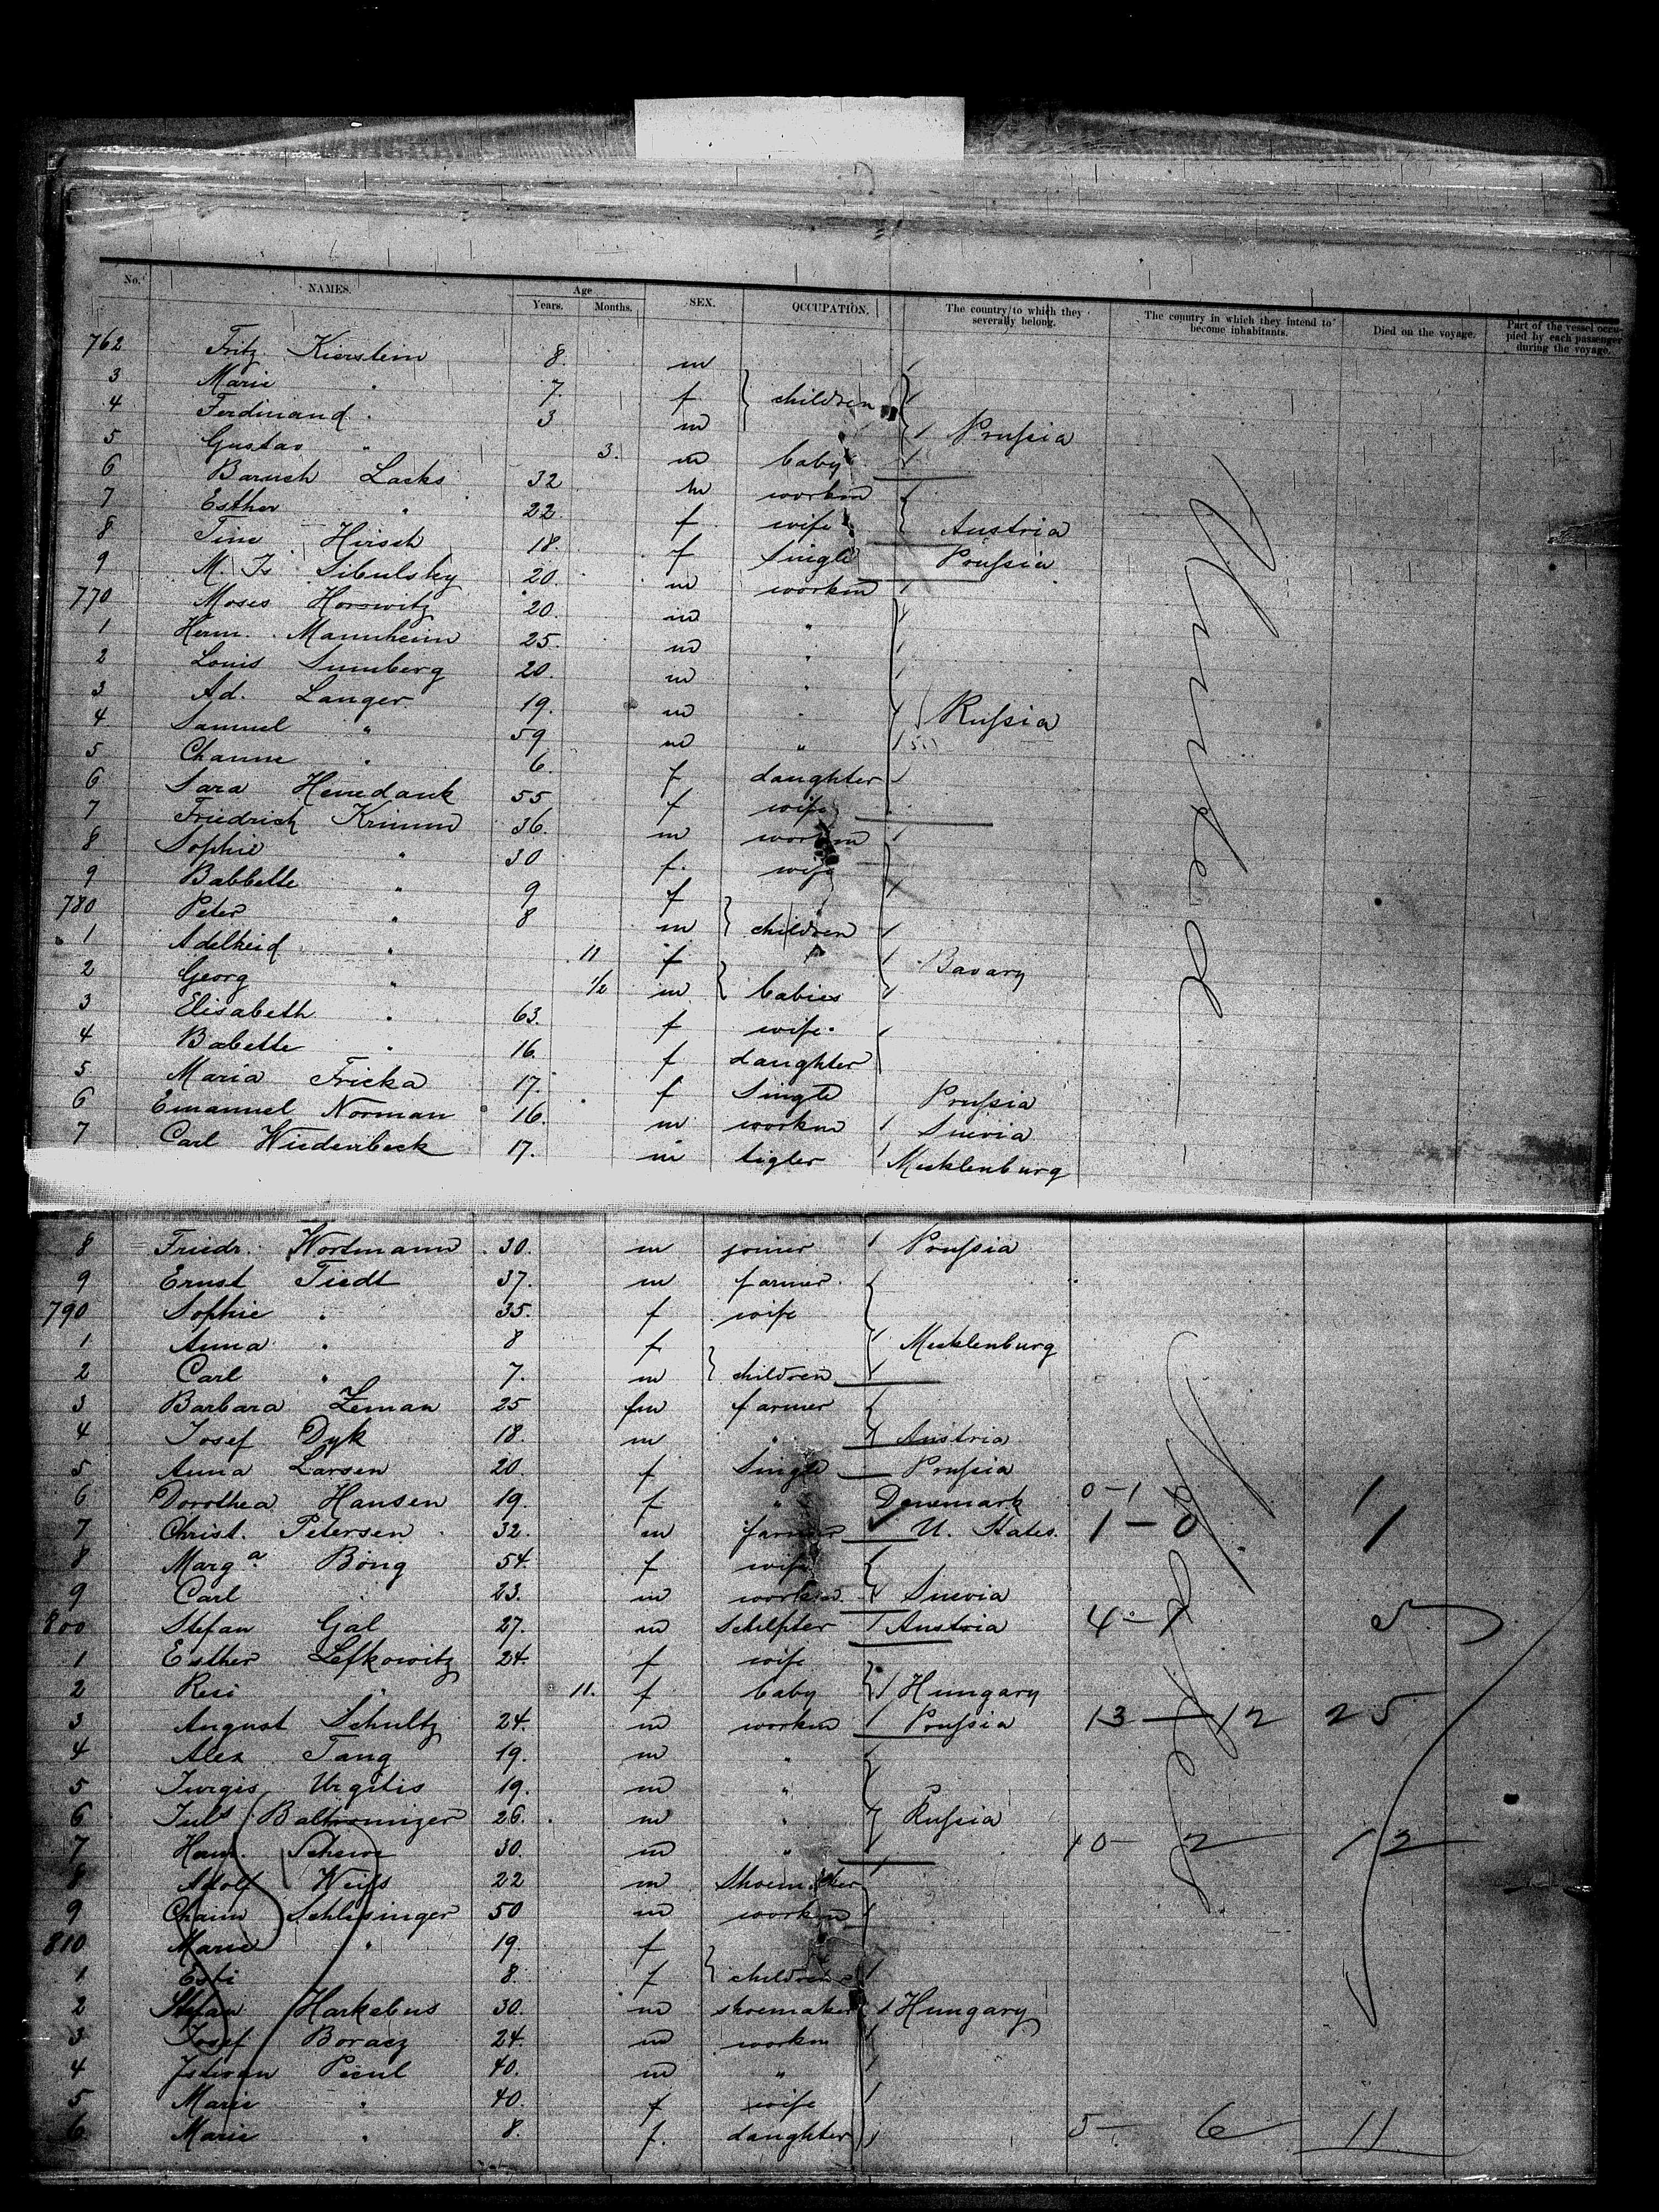 No. NAMES. Age Years. Months. SEX. OCCUPATION. The country to which they severally belong. The country in which they intend to become inhabitants. Died on the voyage. Part of the vessel occupied by each passenger during the voyage.
762 Fritz Kierstein 8. m
3 Marie " 7. f } children
4 Ferdinand " 3 m Prussia
5 Gustav " 3. m baby
6 Baruch Lacks 32 m workm
7 Esther " 22 f wife Austria
8 Tine Hirsch 18. f Single Prussia
9 M. Is. Sibulsky 20. m workm
770 Moses Horowitz 20. m "
1 Herm. Mannheim 25. m "
2 Louis Sumberg 20. m "
3 Ad. Langer 19. m " Russia
4 Samuel " 59 m "
5 Channe " 6. f daughter
6 Sara Henedank 55 f wife
7 Friedrich Krumm 36. m workm
8 Sophie " 30 f. wife
9 Babbette " 9 f
780 Peter " 8 m } children
1 Adelheid " 11 f " Bavary
2 Georg " 1/2 m } babies
3 Elisabeth " 63. f wife
4 Babette " 16. f daughter
5 Maria Fricka 17. f Single Prussia
6 Emanuel Norman 16. m workm Suevia
7 Carl Wiedenbeck 17. m tigler Mecklenburg
8 Friedr. Wortmann 30. m joiner Prussia
9 Ernst Tiedt 37. m farmer
790 Sophie " 35. f wife
1 Anna " 8 f Mecklenburg
2 Carl " 7. m } children
3 Barbara Zeman 25 fm farmer
4 Josef Dyk 18. m " Austria
5 Anna Larsen 20. f Single Prussia
6 Dorothea Hansen 19. f " Denemark 0-1 1
7 Christ. Petersen 32. m farmer U. States. 1-0 1
8 Marga Böng 54. f wife
9 Carl " 23. m workm Suevia
800 Stefan Gal 27. m Austria 4-1 5
1 Esther Lefkowitz 24. f wife
2 Resi " 11. f baby Hungary
3 August Schultz 24. m workm Prussia 13-12 25
4 Alex Tang 19. m "
5 Jurgis Urgitis 19. m "
6 Juls 26. m " Russia
7 30. m " 10-2 12
8 Adolf Weiss 22 m Shoemaker
9 Chaim Schlesinger 50 m workm
810 Marie " 19. f
1 Esti 8. f } children
2 Stefan Harkebus 30. m shoemaker Hungary
3 Josef Boracz 24. m workm
4 Istvan Picul 40. m "
5 Marie " 40. f wife
6 Marie " 8. f. daughter 5-6 11